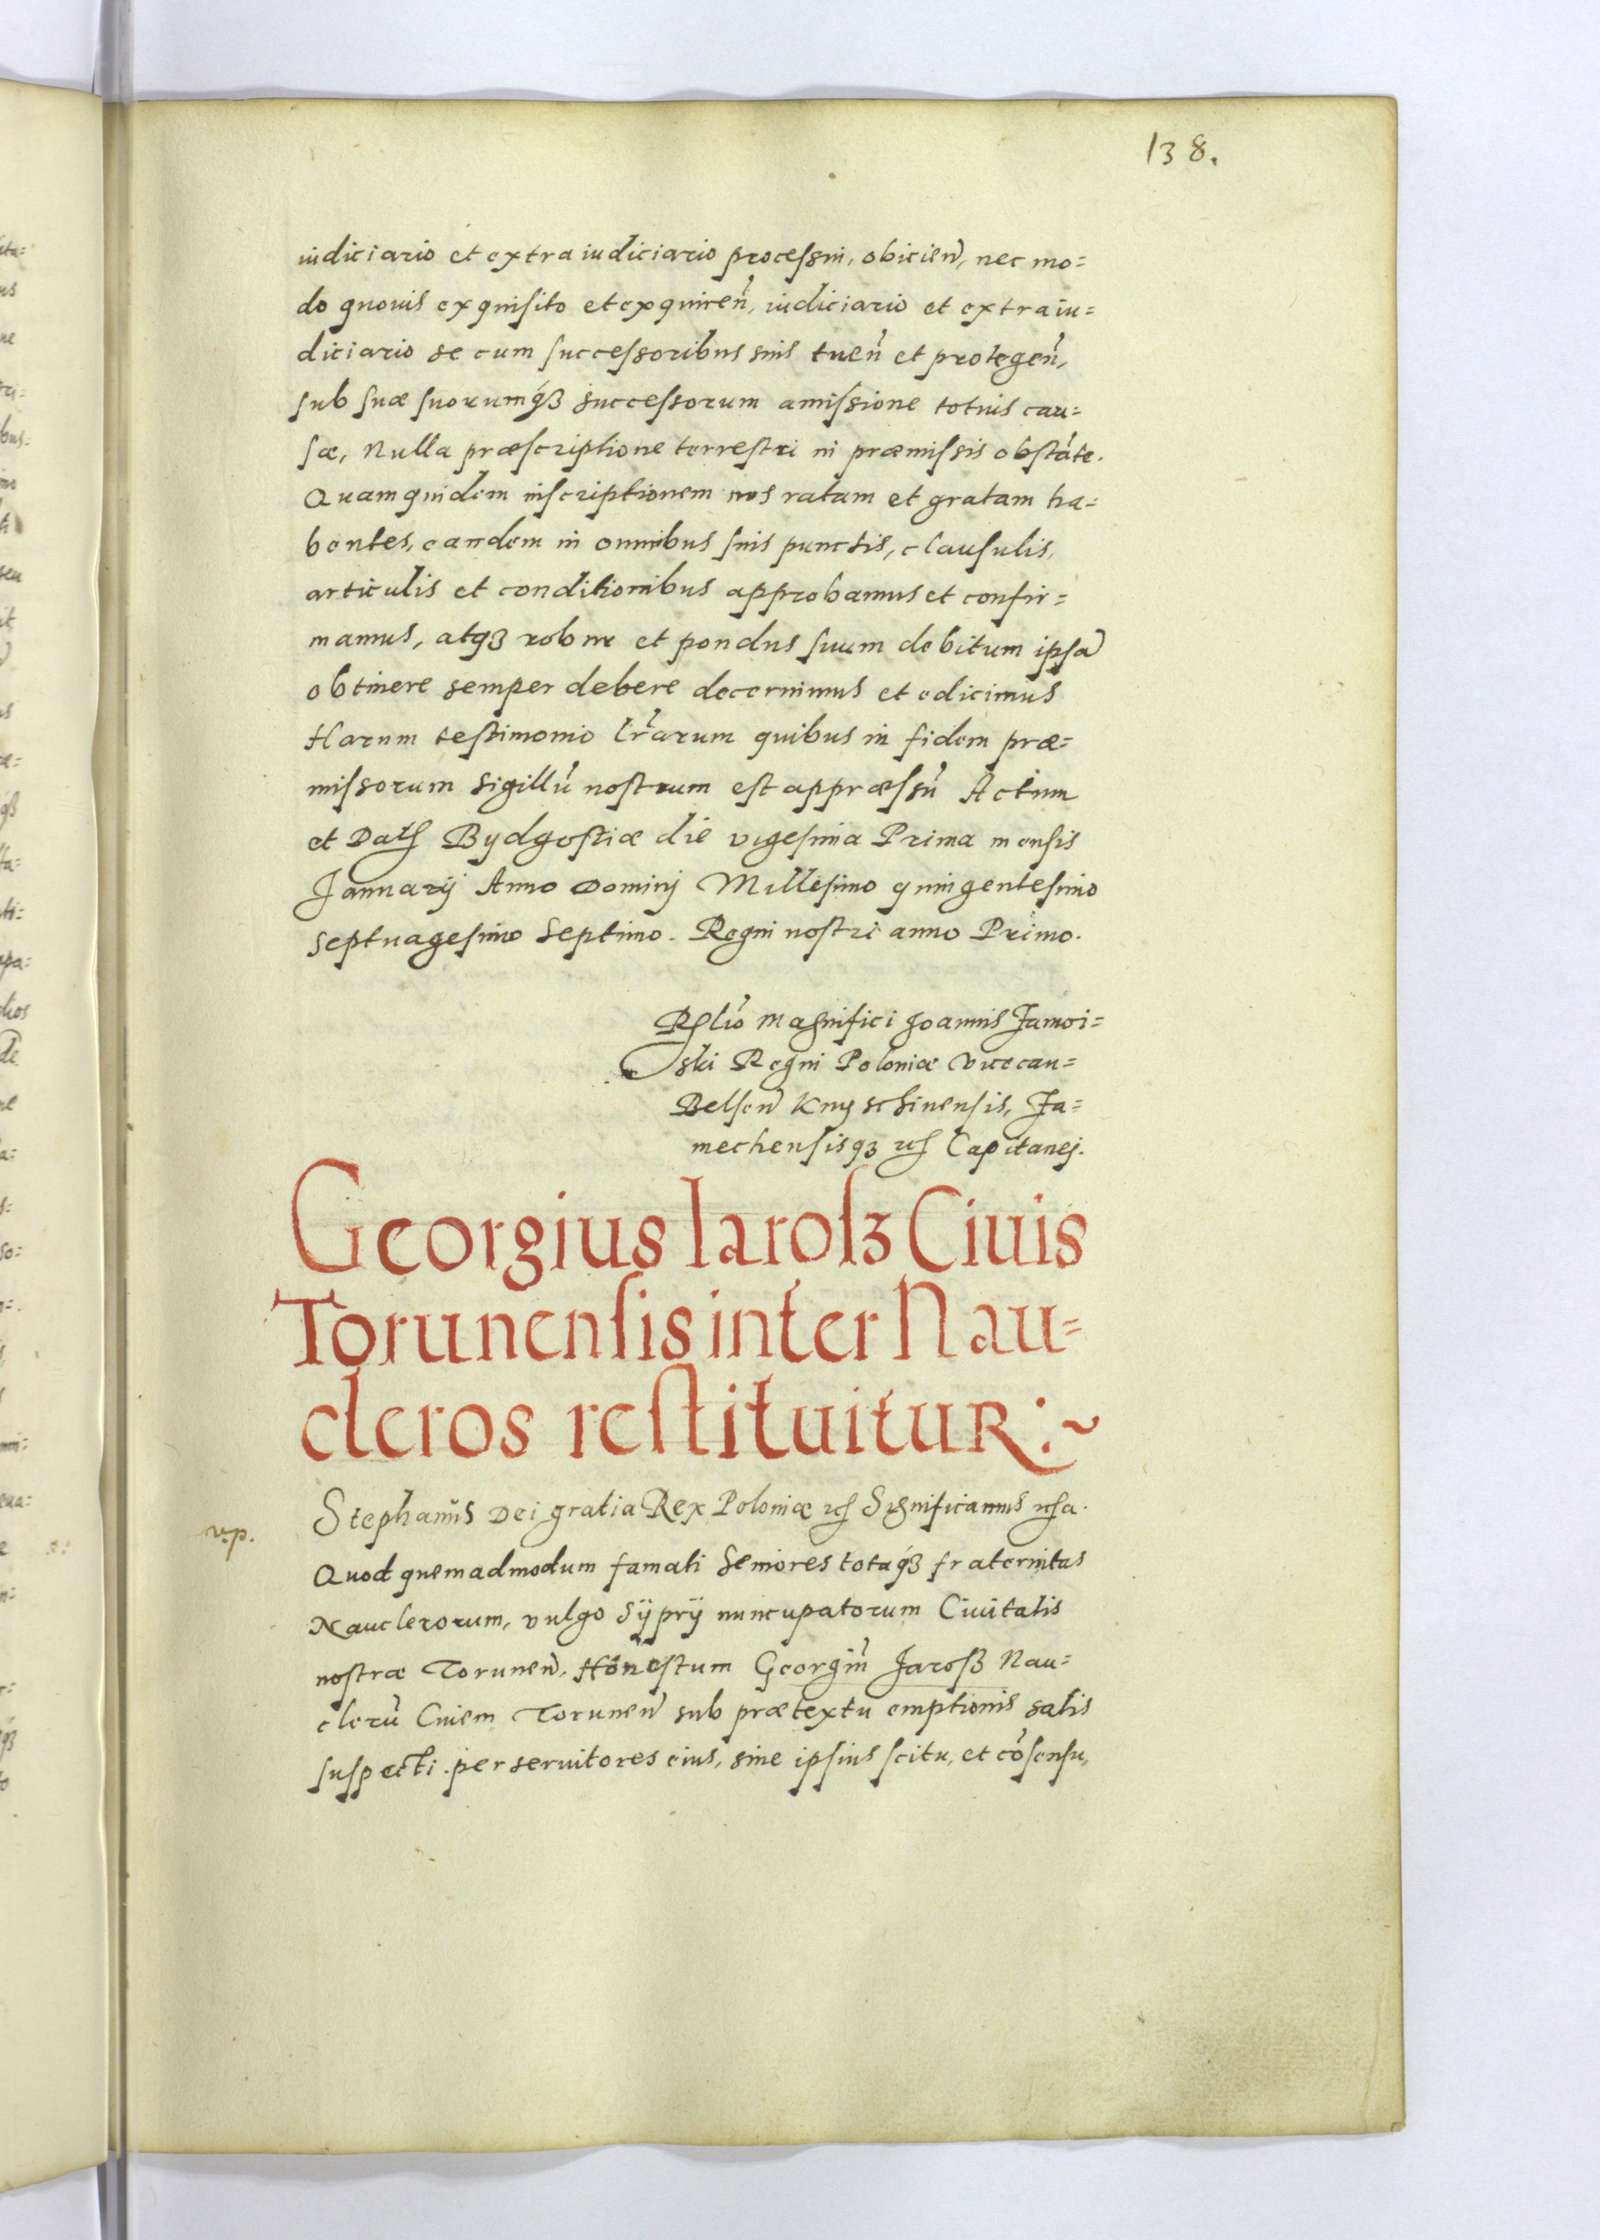 138.
iudiciario et extraiudiciario processui, obicień, nec mo=
do quouis exquisito et exquireń, iudiciario et extraiu=
diciario se cum successoribus suis tueń et protegeń,
sub suæ suorumq́ꝫ successorum amissione totius cau=
sæ, Nulla præscriptione terrestri in præmissis obstãte.
Quamquidem inscriptionem nos ratam et gratam ha=
bentes, eandem in omnibus suis punctis, clausulis,
articulis et conditionibus approbamus et confir=
mamus, atqꝫ robur et pondus suum debitum ipsã
obtinere semper debere decernimus et edicimus
Harum testimonio lr̃arum quibus in fidem præ=
missorum sigillũ nostrum est appræssũ Actum
et Datꝭ Bydgostiæ die vigesima Prima mensis
Januarij Anno Dominj Millesimo quingentesimo
septuagesimo septimo. Regni nostri anno Primo.
Rꝭlio Magnifici Joannis Zamoi=
ski Regni Poloniæ Vicecan=
Belseń Knyschinensis, Za=
mechensisqꝫ ꝛcꝭ Capitanej.
Georgius Iarosz Ciuis
Torunensis inter Nau=
cleros restituitur:~
Stephanus Dei gratia Rex Poloniæ ꝛcꝭ Significamus ꝛcꝭa.
Quod quemadmodum famati Seniores totaq́ꝫ fraternitas
Nauclerorum, vulgo Sÿprÿ nuncupatorum Ciuitatis
nostræ Toruneń, Honestum Georgiũ Jarosz Nau=
clerũ Ciuem Toruneń sub prætextu emptionis salis
suspecti per seruitores eius, sine ipsius scitu, et cõsensu,